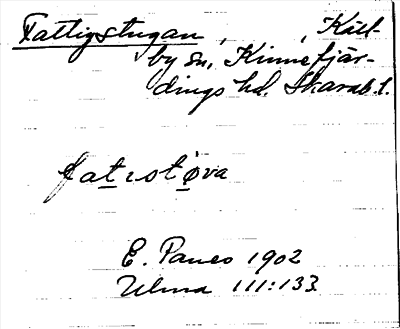 Fattigstugan, , Käll-
by sn, Kinnefjär-
dings hd. Skarab. l.
fatıstøva
E. Pauco 1902
Ulma 111:133